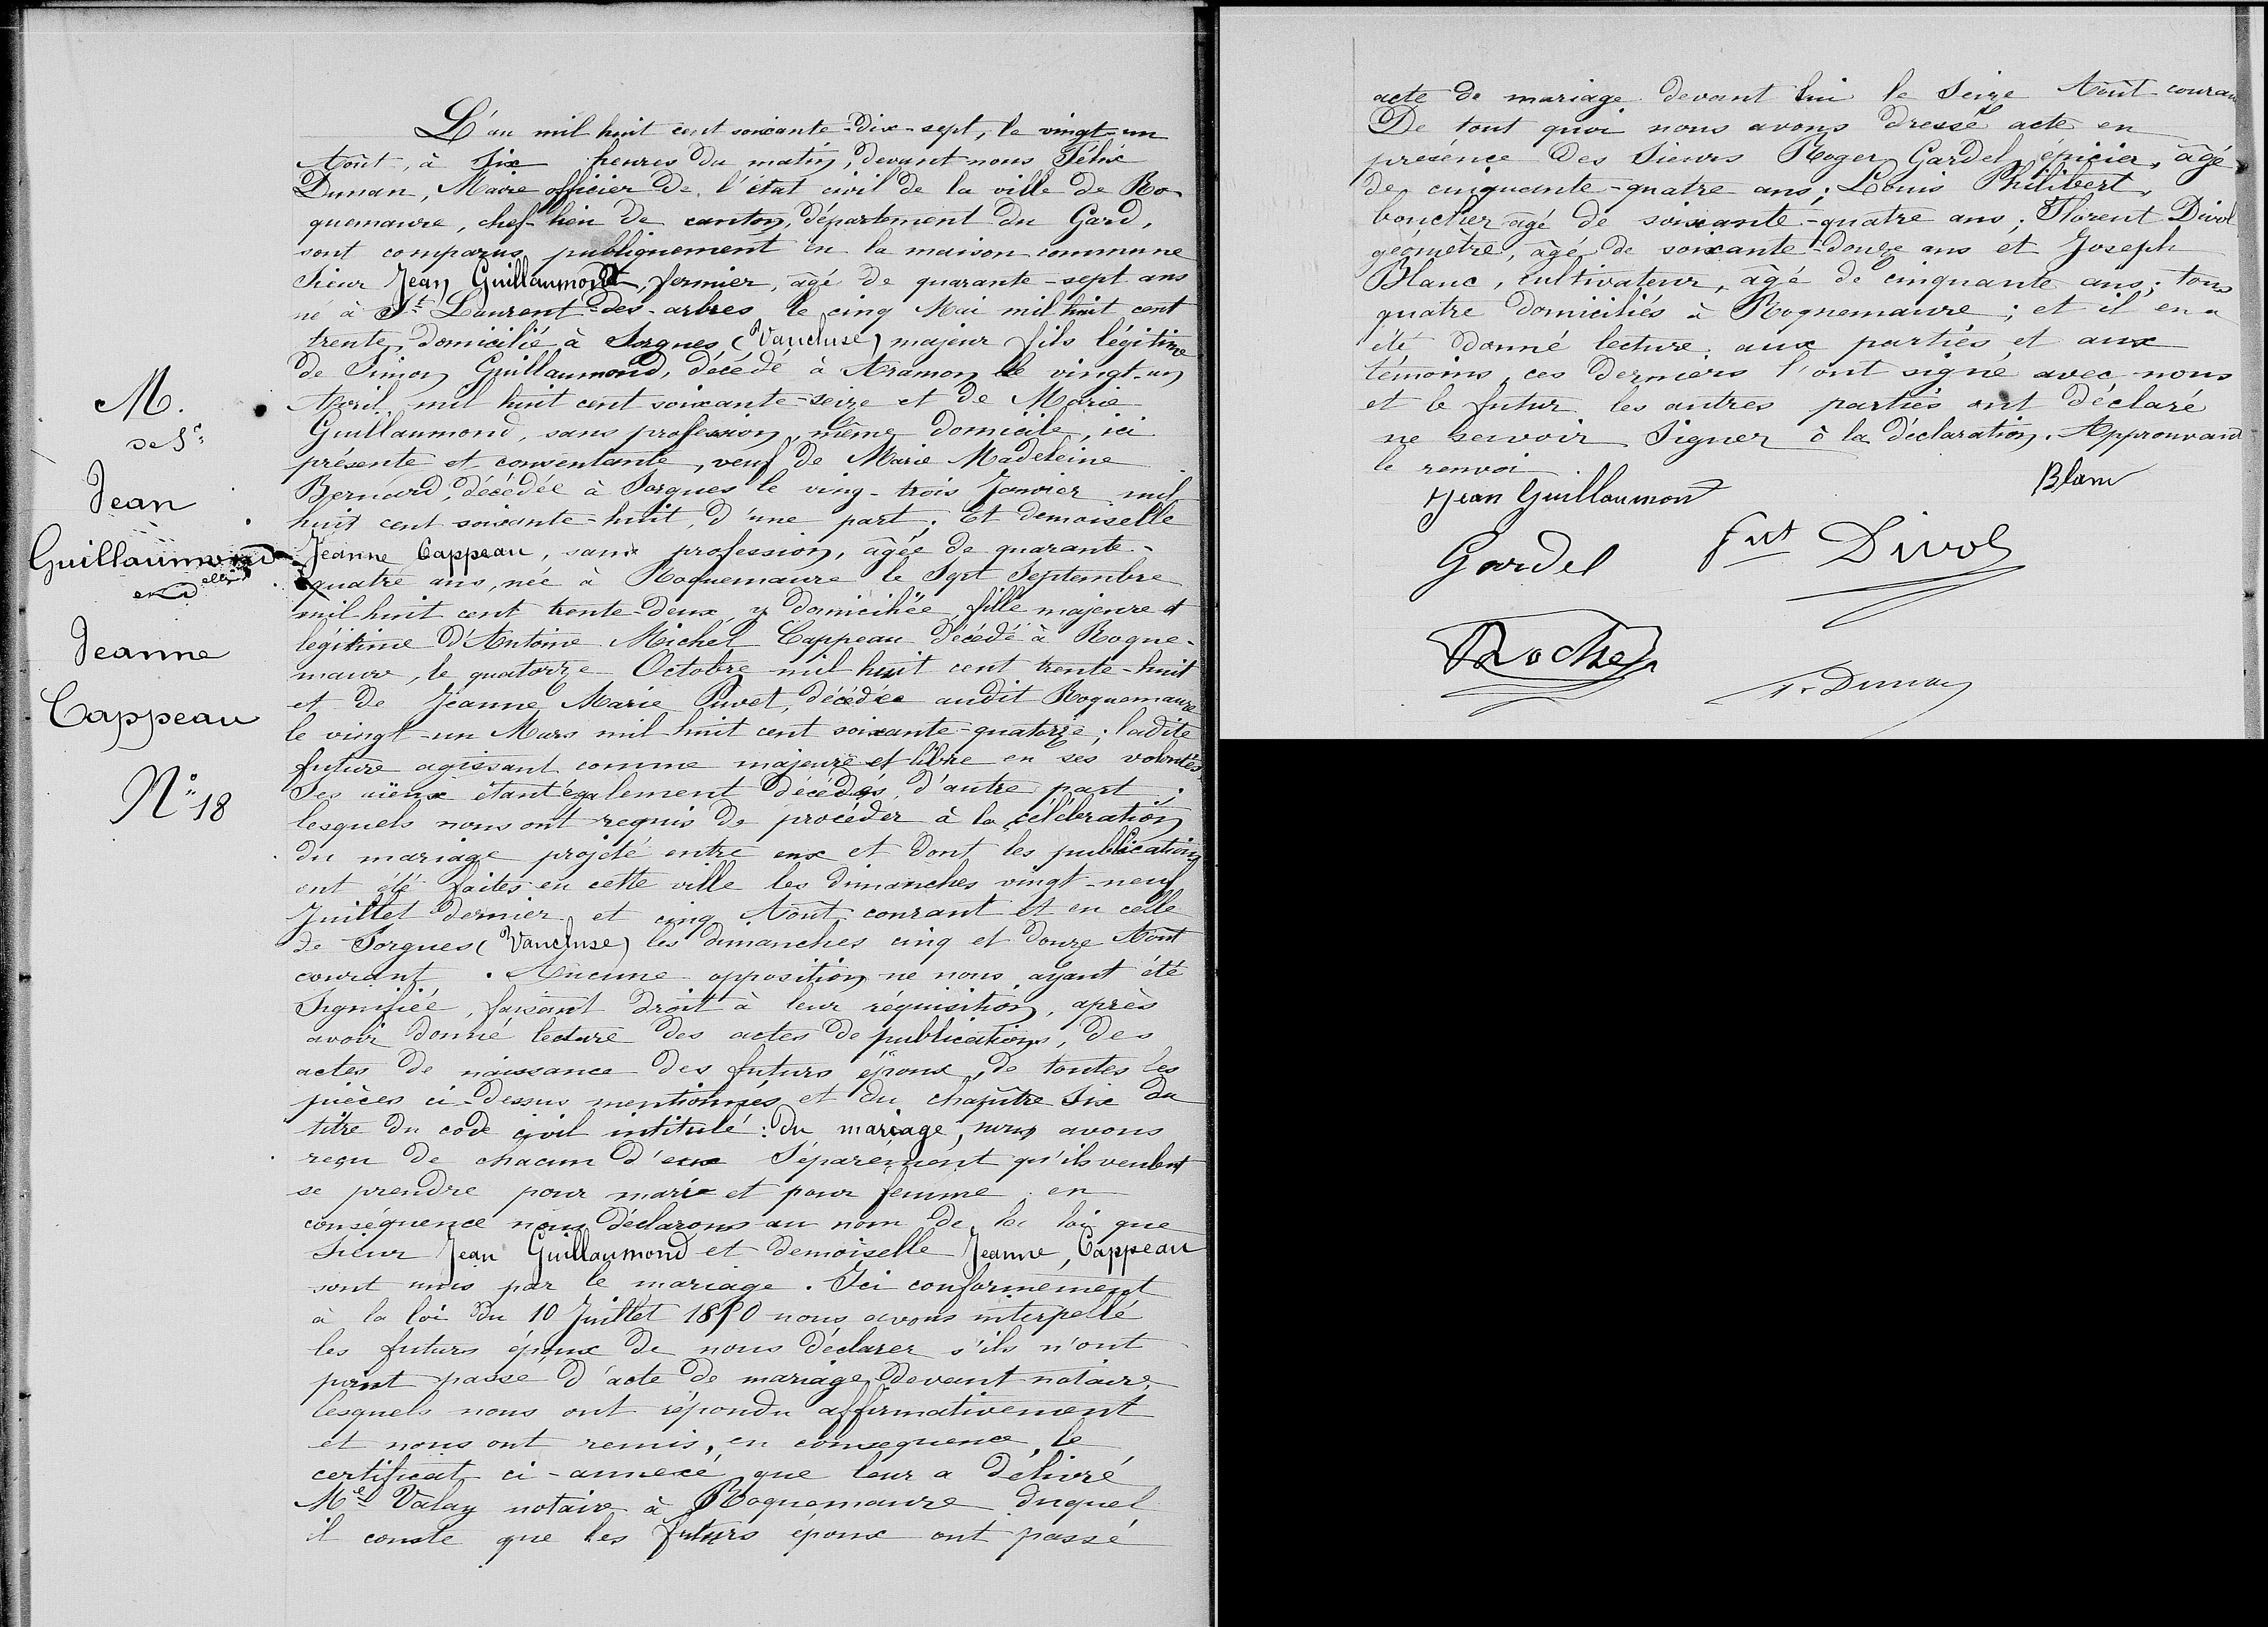 L'an mil huit cent soixante-dix-sept, le vingt-un
Août, à Six heures du matin, devant nous Félix
Dunan, Maire officier de l'état civil de la ville de Ro-
quemaure, chef-lieu de canton, département du Gard,
sont comparus publiquement en la maison commune
Sieur Jean Guillaumond, fermier, âgé de quarante-sept ans
né à St Laurent-des-arbres le cinq Mai mil huit cent
trente, domicilié à Sorgues (Vaucluse) majeur fils légitime
de Simon Guillaumond, décédé à Aramon le vingt-un
Avril mil huit cent soixante-seize et de Marie
Guillaumond, sans profession, même domicile, ici
présente et consentante, veuf de Marie Madeleine
Bernard, décédée à Sorgues le ving-trois Janvier mil
huit cent soixante-huit, d'une part; Et demoiselle
Jeanne Cappeau, sans profession, âgée de quarante-
quatre ans, née à Roquemaure le Sept Septembre
mil huit cent trente-deux y domiciliée, fille majeure et
légitime d'Antoine Michel Cappeau décédé à Roque-
maure, le quatorze Octobre mil huit cent trente-huit
et de Jeanne Marie Pivet, décédée audit Roquemaure
le vingt-un Mars mil huit cent soixante-quatorze; ladite
future agissant comme majeure et libre en ses volontés
Ses aïeux étant également décédés, d'autre part;
lesquels nous ont requis de procéder à la célébration
du mariage projeté entre eux et dont les publications
ont été faites en cette ville les dimanches vingt-neuf
Juillet dernier et cinq Août courant et en celle
de Sorgues (Vaucluse) les dimanches cinq et douze Août
courant. Aucune opposition ne nous ayant été
Signifiée, faisant droit à leur réquisition, après
avoir donné lecture des actes de publications, des
actes de naissance des futurs époux, de toutes les
pièces ci-dessus mentionnés et du chapitre Six du
titre du code civil intitulé: du mariage, nous avons
reçu de chacun d'eux Séparément qu'ils veulent
se prendre pour mari et pour femme en
conséquence nous déclarons au nom de la loi que
Sieur Jean Guillaumond et demoiselle Jeanne, Cappeau
sont unis par le mariage. Ici conformément
à la loi du 10 Juillet 1850 nous avons interpellé
les futurs époux de nous déclarer s'ils n'ont
point passé d'acte de mariage devant notaire,
lesquels nous ont répondu affirmativement
et nous ont remis, en conséquence, le
certificat ci-annexé que leur a délivré
Me Valay notaire à Roquemaure duquel
il conste que les futurs époux ont passé
M.
de Sr
Jean
Guillaumond
et dlle
Jeanne
Cappeau
N° 18
acte de mariage devant lui le Seize Août couran
De tout quoi nous avons dressé acte en
présence des Sieurs Roger Gardel, épicier, âgé
de cinquante-quatre ans; Louis Philibert,
boucher âgé de soixante-quatre ans; Florent Divol
géomètre, âgé de soixante-douze ans et Joseph
Blanc, cultivateur, âgé de cinquante ans; tous
quatre domiciliés à Roquemaure; et il en a
été donné lecture aux parties et aux
témoins, ces derniers l'ont signé avec nous
et le futur les autres parties ont déclaré
ne savoir Signer à la déclaration. Approuvant
le renvoi
Jean Guillaumont
Blanc
Gardel
Divol
Roche
F. Dunan